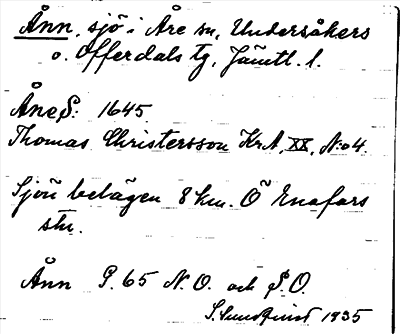 Ånn, sjö i Åre sn, Undersåkers
o. Offerdals tg, Jämtl. l.
Åne S: 1645
Thomas Christersson KrA, XX, N:o 4.
Sjön belägen 8 km. Ö Enafors
stn.
Ånn P. 65 N.O. och S.O.
S. Sundquist 1935